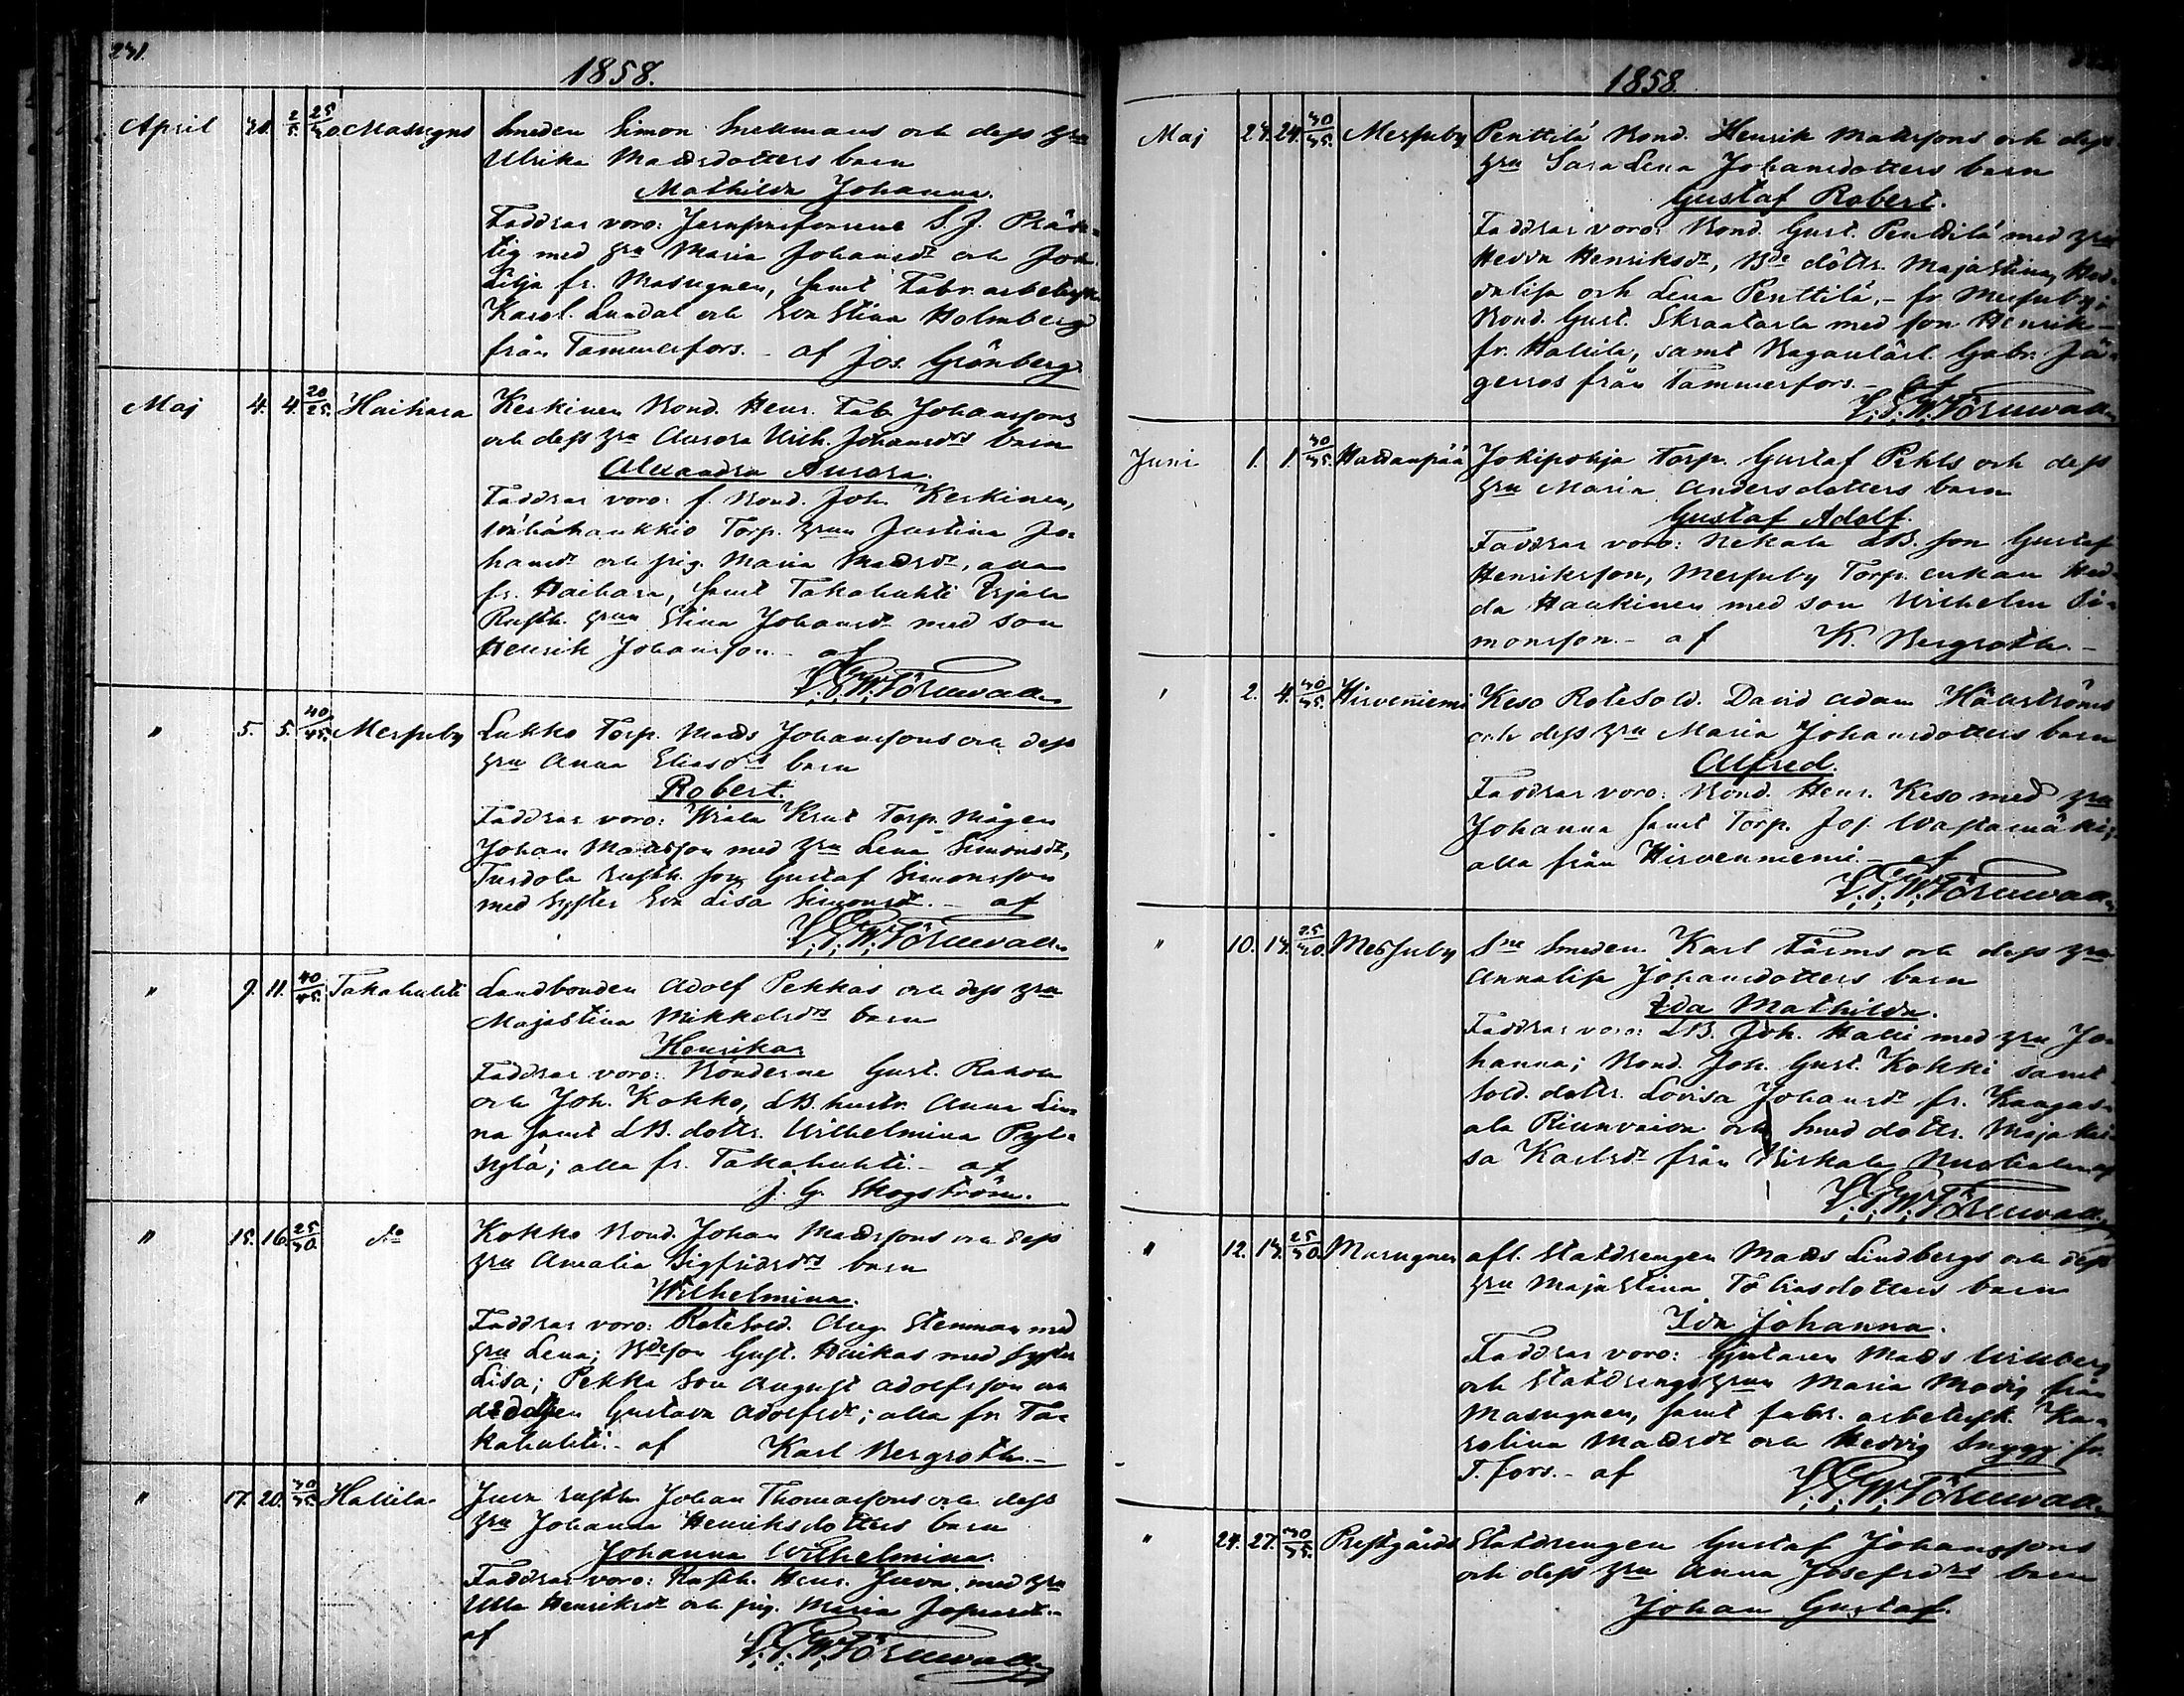 241.
1858.
April 30. 2/5. 25/30. Masugns Smeden Simon Snellmans och dess hru
Ulrika Mattsdotters barn
Mathilda Johanna.
Faddrar voro: S. J. Präk-
tig med hru Maria Johansdr och Joh.
Lilja fr. Masugnen, samt Fabr. arbetersk.
Karol. Lundal och Eva Stina Holmberg
från Tammerfors. - af Jos. Grönberg
Maj 4. 4. 20/25. Haihara Keskinen Bond. Henr. Fab. Johanssons
och dess hru Aurora Wilh. Johansdrs barn
Alexandra Aurora.
Faddrar voro: f. Bond. Joh. Keskinen,
Wähähaukkio Torp. hrun Justina Jo-
hansdr och pig. Maria Mattsdr, alla
fr. Haihara, samt Takahuhti Erjala
Rusth. hrun Stina Johansdr med son
Henrik Johansson. - af
" 5. 5. 40/45. Messuby Lukko Torp. Matts Johanssons och dess
hru Anna Eliasdrs barn
Robert.
Faddrar voro: Krut Torp. Mågen
Johan Mattsson med hru Lena Simonsdr,
Turtola rusth. son Gustaf Simonsson
med syster Eva Lisa Simonsdr. - af
" 9. 11. 40/45. Takahuhti Landbonden Adolf Pekkas och dess hru
Majastina Mikkelsdrs barn
Henrika.
Faddrar voro: Bönderne Gust. Rahola
och Joh. Kokko, LB. hustr. Anna Lee-
na samt LB. dottr. Wilhelmina Pyl-
sylä; alla fr. Takahuhti. - af
J. G. Skogström.
" 15. 16. 25/30. do Kokko Bond. Johan Mattssons och dess
hru Amalia Sigfridsdrs barn
Wilhelmina.
Faddrar voro: RoteSold. Aug. Stenman med
hru Lena; Bdeson Gust. Huikas med syster
Lisa; Pekka son August Adolfsson och
Gustava Adolfsdr; alla fr. Ta-
kahuhti. - af Karl Bergroth. -
" 17. 20. 30/35. Hallila Juva rusth. Johan Thomassons och dess
hru Johanna Henriksdotters barn
Johanna Wilhelmina.
Faddrar voro: Rusth. Henr. Juva med hru
Ulla Henriksdr och pig. Maria Josefsdr. -
af
1858.
Maj 24. 24. 30/35. Messuby Penttilä Bond. Henrik Mattssons och dess
hru Sara Lena Johansdotters barn
Gustaf Robert.
Faddrar voro: Bond. Gust. Penttilä med hru
Hedda Henriksdr, Bde döttr. Majastina, Hed-
dalisa och Lena Penttilä, - fr. Messuby;
Bond. Gust. Skraatarla med son Henrik -
fr. Hallila, samt Gabr. Jä-
geros från Tammerfors. - af
Juni 1. 1. 30/35. Hattanpää Jokipohja Torp. Gustaf Pihls och dess
hru Maria Andersdotters barn
Gustaf Adolf.
Faddrar voro: Nekala LB. son Gustaf
Henriksson, Messuby Torp. enkan Hed-
da Haukinen med son Wilhelm Si-
monsson. - af K. Bergroth. -
" 2. 4. 30/35. Hirveniemi Keso RoteSold. David Adam Häkströms
och dess hru Maria Johansdotters barn
Alfred.
Faddrar voro: Bond. Henr. Keso med hru
Johanna samt Torp. Jos. Wastamäki;
alla från Hirvenniemi. - af
" 10. 13. 25/30. Messuby Sne Smeden Karl Färms och dess hru
Annalisa Johansdotters barn
Ida Mathilda.
Faddrar voro: LB. Joh. Halli med hru Jo-
hanna; Bond. Joh. Gust. Kokki samt
Sold. dottr. Lovisa Johansdr fr. Kangas-
ala och Smed dottr. Maja
sa Karlsdr från
" 12. 13. 25/30. Masugnen afl. Statdrengen Matts Lindbergs och dess
hru Majastina Tobiasdotters barn
Ida Johanna.
Faddrar voro: Gjutaren Matts Willberg
och Statdrengshrun Maria Modig från
Masugnen, samt fabr. arbetersk. Ka-
rolina Mattsdr och Hedvig Snygg fr.
T.fors. - af
" 24. 27. 30/35. Prestgårds Statdrengen Gustaf Johanssons
och dess hru Anna Josefsdrs barn
Johan Gustaf.